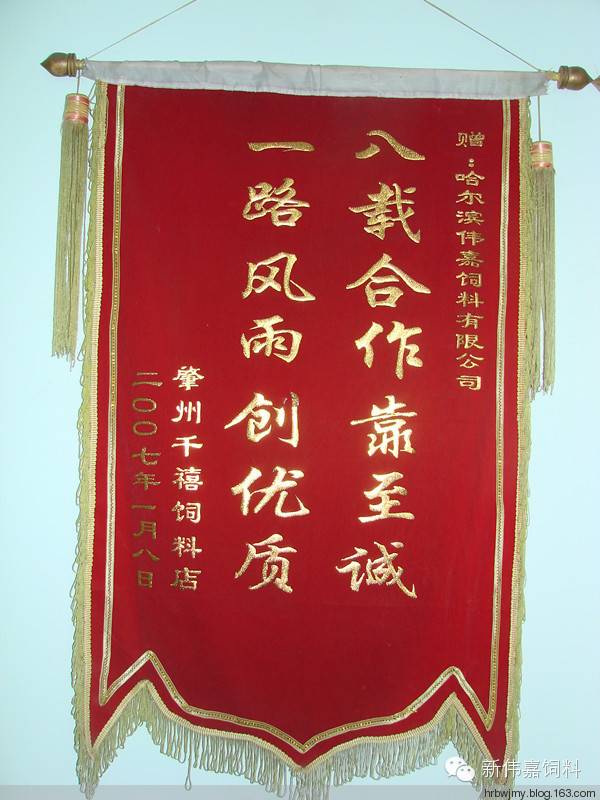 赠：哈尔滨伟嘉饲料有限公司
八载合作靠至诚
一路风雨创优质
肇州千禧饲料店
二〇〇七年一月八日
新伟嘉饲料
hrbwjmy.blog.163.com